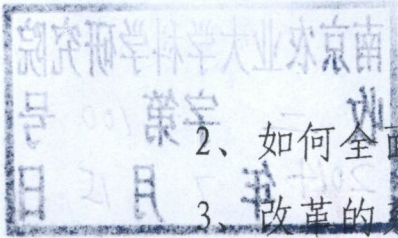 南京农业大学科学研究院
收 字第 100 号
年 7 月 15 日
2、如何全
3、改革的